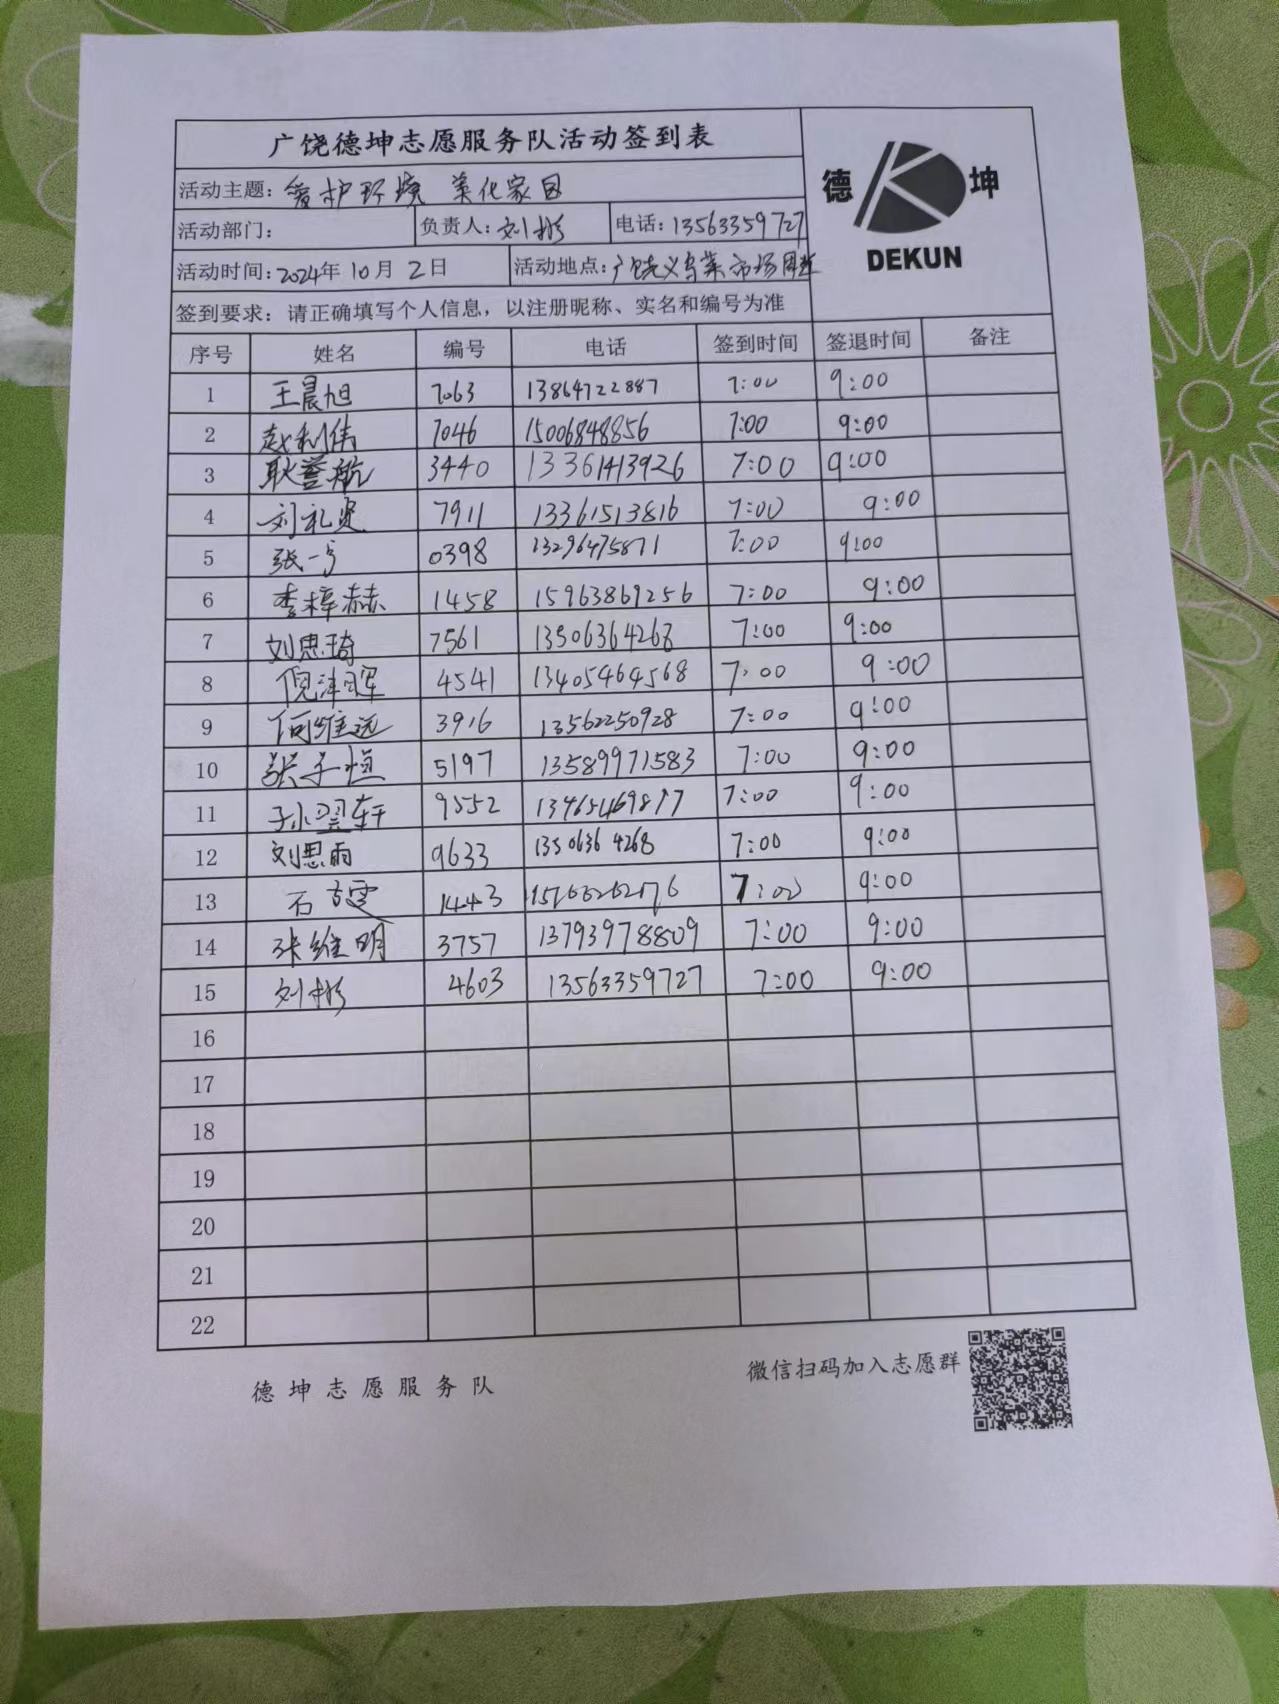 广饶德坤志愿服务队活动签到表
德 坤
DEKUN
活动主题：爱护环境 美化家园
活动部门： 负责人：刘彬 电话：13563359727
活动时间：2024年10月2日 活动地点：广饶义乌菜市场周边
签到要求：请正确填写个人信息，以注册昵称、实名和编号为准
序号 姓名 编号 电话 签到时间 签退时间 备注
1 王晨旭 7063 13864722887 7:00 9:00
2 赵利伟 7046 15006848856 7:00 9:00
3 耿誉航 3440 13361413926 7:00 9:00
4 刘礼贤 7911 13361513816 7:00 9:00
5 张一 0398 13296475871 7:00 9:00
6 李梓赫 1458 15963869256 7:00 9:00
7 刘思琦 7561 13506364268 7:00 9:00
8 倪沣晖 4541 13405464568 7:00 9:00
9 何维远 3916 13562250928 7:00 9:00
10 张子恒 5197 13589971583 7:00 9:00
11 孙翌轩 9552 13465469877 7:00 9:00
12 刘思雨 9633 13506364268 7:00 9:00
13 石 1443 7:00 9:00
14 张维明 3757 13793978809 7:00 9:00
15 刘彬 4603 13563359727 7:00 9:00
16
17
18
19
20
21
22
德坤志愿服务队
微信扫码加入志愿群